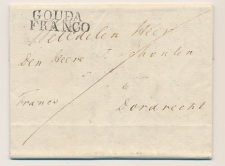 GOUDA
FRANCO
Weledelen Heer
Den Heere
Franco Dordrecht